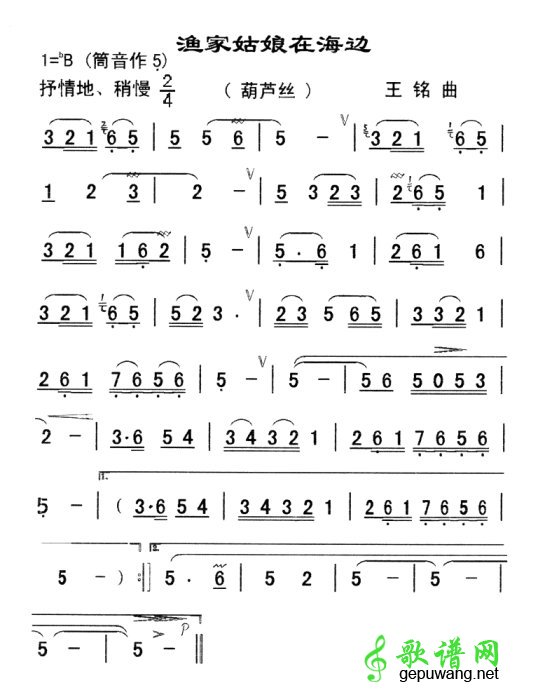 渔家姑娘在海边
1=ᵇB (筒音作5̣)
抒情地、稍慢 2/4 （葫芦丝） 王 铭 曲
3 2 1 6 5 | 5 5 6 | 5 - V | 3 2 1 6 5 |
1 2 3 | 2 - V | 5 3 2 3 | 2 6 5 1 |
3 2 1 1 6 2 | 5 - V | 5 . 6 1 | 2 6 1 6 |
3 2 1 6 5 | 5 2 3 . V | 2 3 5 6 5 | 3 3 2 1 |
2 6 1 7 6 5 6 | 5 - V | 5 - | 5 6 5 0 5 3 |
2 - | 3 · 6 5 4 | 3 4 3 2 1 | 2 6 1 7 6 5 6 |
1.
5 - | ( 3 · 6 5 4 | 3 4 3 2 1 | 2 6 1 7 6 5 6 |
2.
5 - ) :| 5 . 6 | 5 2 | 5 - | 5 - |
5 - | 5 > - p ‖
歌谱网
gepuwang.net